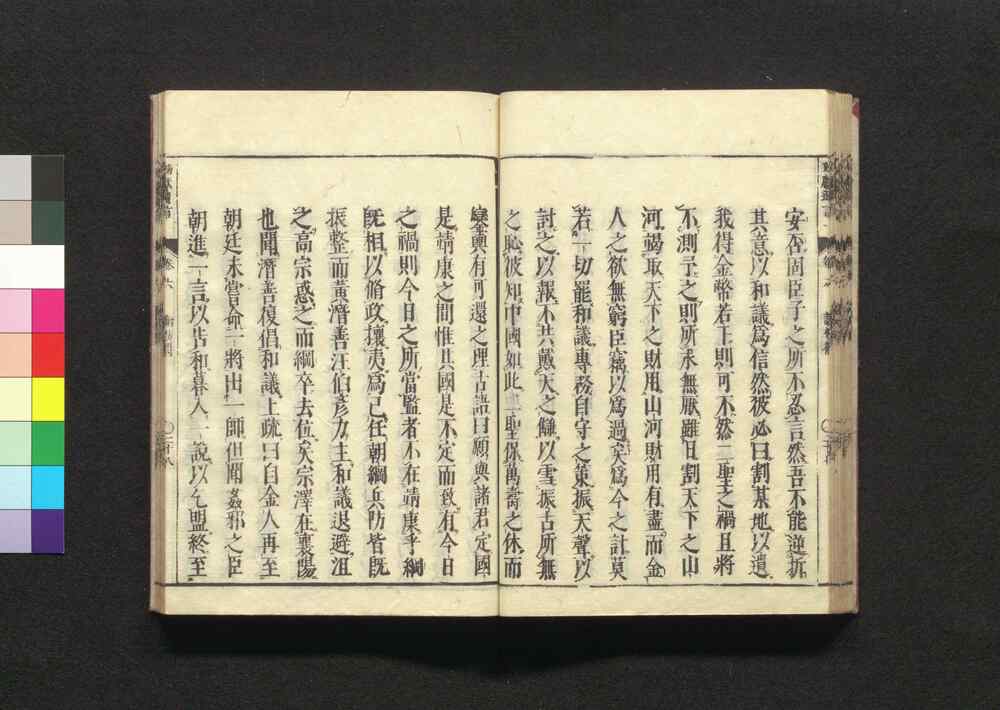 安否固臣子之所不忍言然吾不能逆折
其意以和議爲信然彼必曰割某地以遺
我得金幣若干則可不然二聖之禍且將
不測予之則所求無厭雖日割天下之山
河竭取天下之財用山河財用有盡而金
人之欲無窮臣竊以爲過矣爲今之計莫
若一切罷和議專務自守之策振天聲以
討之以報不共戴天之讎以雪振古所無
之恥彼知中國如此二聖保萬壽之休而
鑾輿有可還之理古語曰願與諸君定國
是靖康之間惟其國是不定而致有今日
之禍則今日之所當監者不在靖康乎綱
既相以脩政攘夷爲己任朝綱兵防皆既
振整而黃潛善汪伯彥力主和議退避沮
之高宗惑之而綱卒去位矣宗澤在襄陽
也聞潛善復倡和議上疏曰自金人再至
朝廷未嘗命一將出一師但聞姦邪之臣
朝進一言以告和暮入一說以乞盟終至